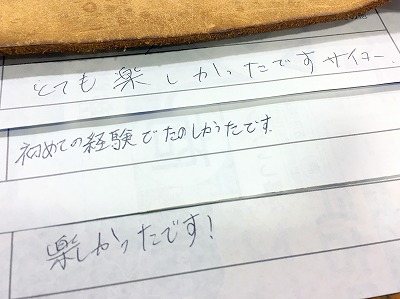 とても楽しかったですサイコー.
初めての経験でたのしかったです.
楽しかったです!